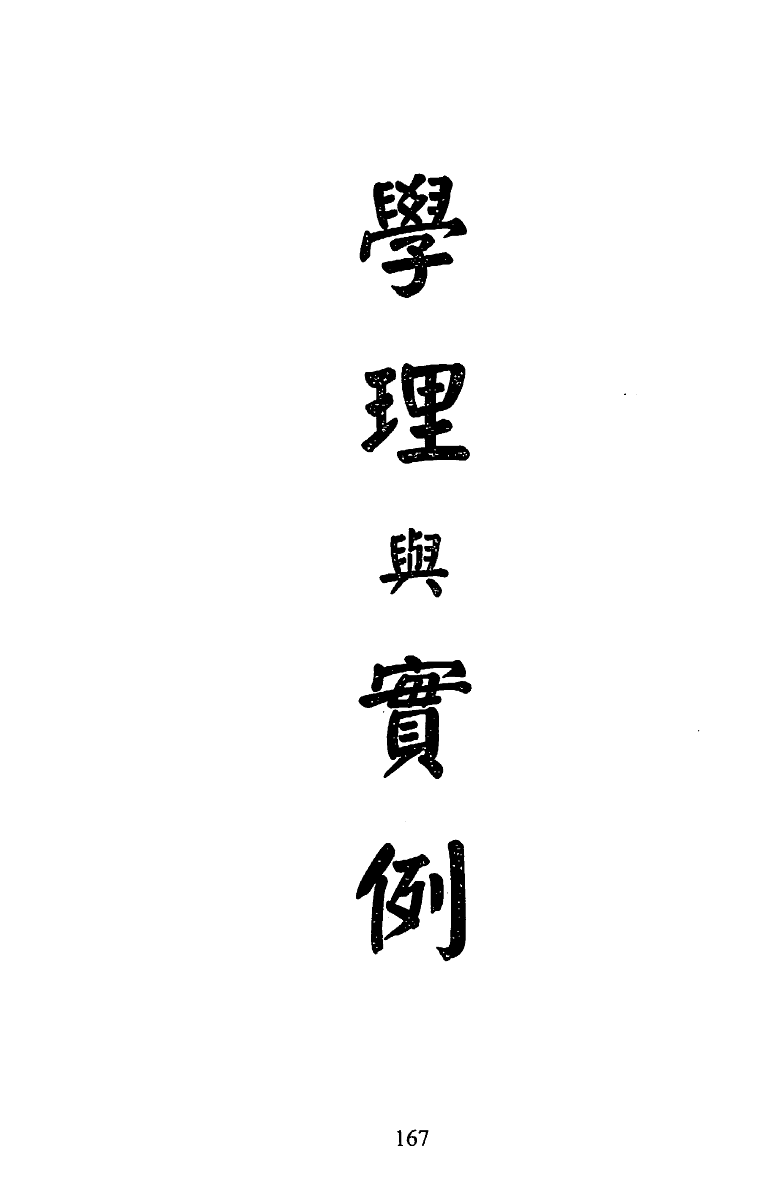 學理與實例
167